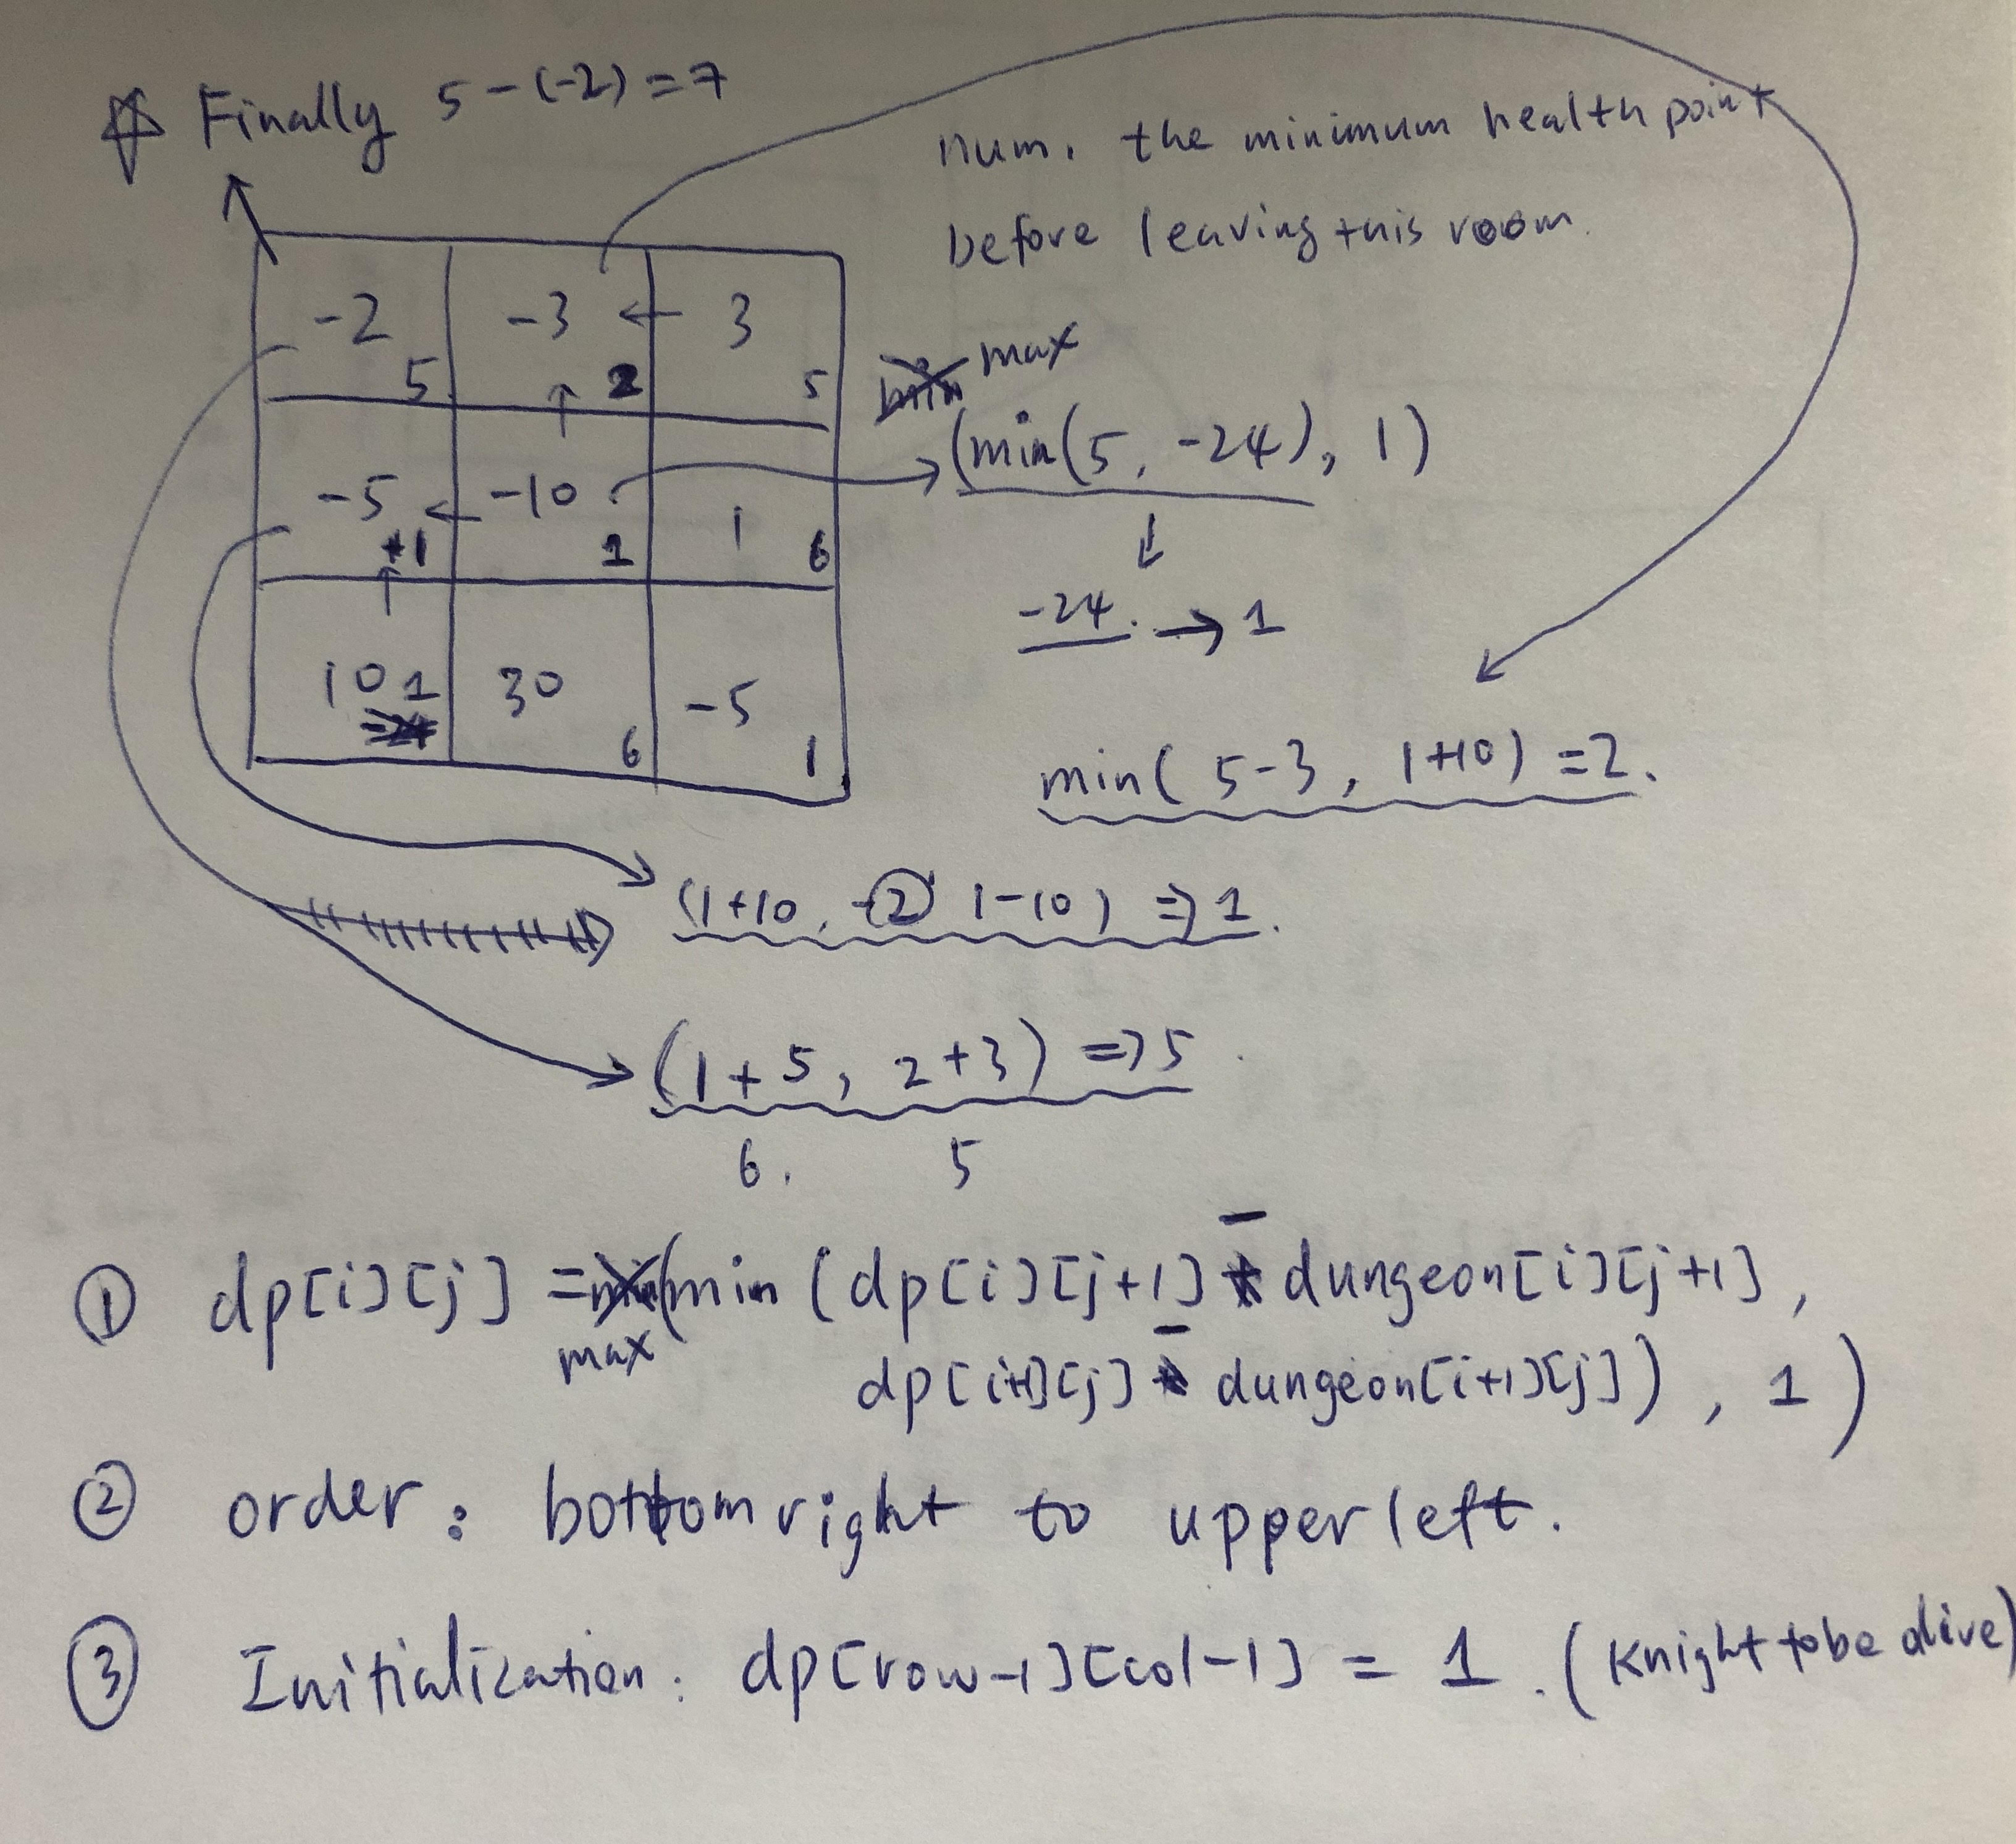 ☆ Finally 5-(-2)=7
num. the minimum health point
before leaving this room.
-2 5 -3 ← 3
↑ 2 5
max
(min(5, -24), 1)
-5 ← -10 1
+1 1 6
↓
-24. → 1
↑
10 1 30 -5
6 1
min( 5-3, 1+10) =2.
(1+10, 1-10) => 1.
(1+5, 2+3) =>5
6. 5
① dp[i][j] = max(min (dp[i][j+1] - dungeon[i][j+1],
dp[i+1][j] - dungeon[i+1][j]), 1)
② order: bottom right to upper left.
③ Initialization: dp[row-1][col-1] = 1. (Knight to be alive)